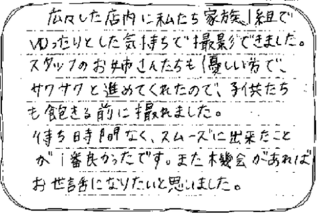 広々した店内に私たち家族1組で
ゆったりとした気持ちで撮影できました。
スタッフのお姉さんたちも優しい方で、
サクサクと進めてくれたので、子供たち
も飽きる前に撮れました。
待ち時間なく、スムーズに出来たこと
が1番良かったです。また機会があれば
お世話になりたいと思いました。